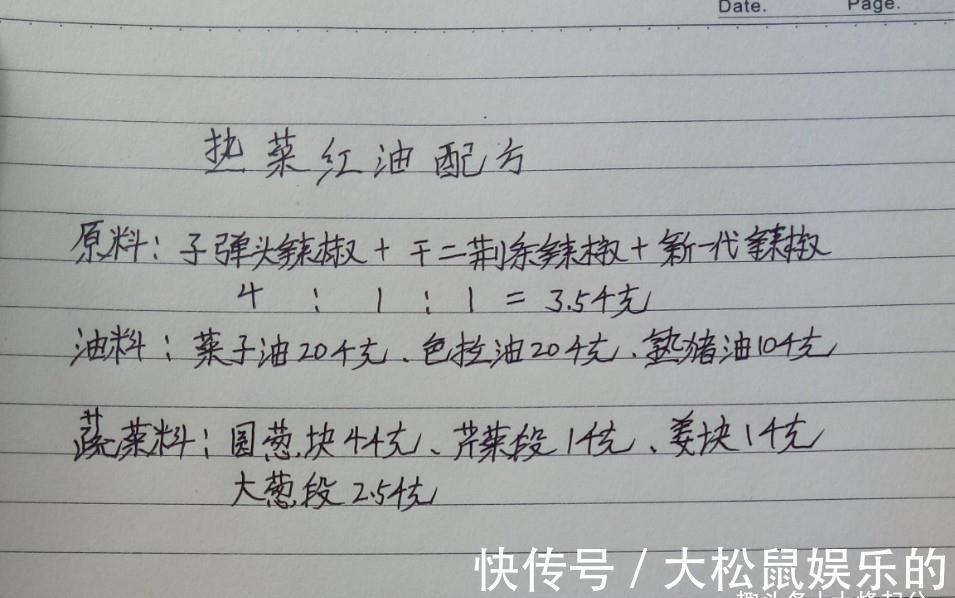 Date.
Page.
热菜红油配方
原料：子弹头辣椒+干二荆条辣椒+新一代辣椒
4：1：1=3.5千克
油料：菜子油20千克、色拉油20千克、熟猪油10千克
蔬菜料：圆葱块4千克、芹菜段1千克、姜块1千克
大葱段2.5千克
快传号/大松鼠娱乐的